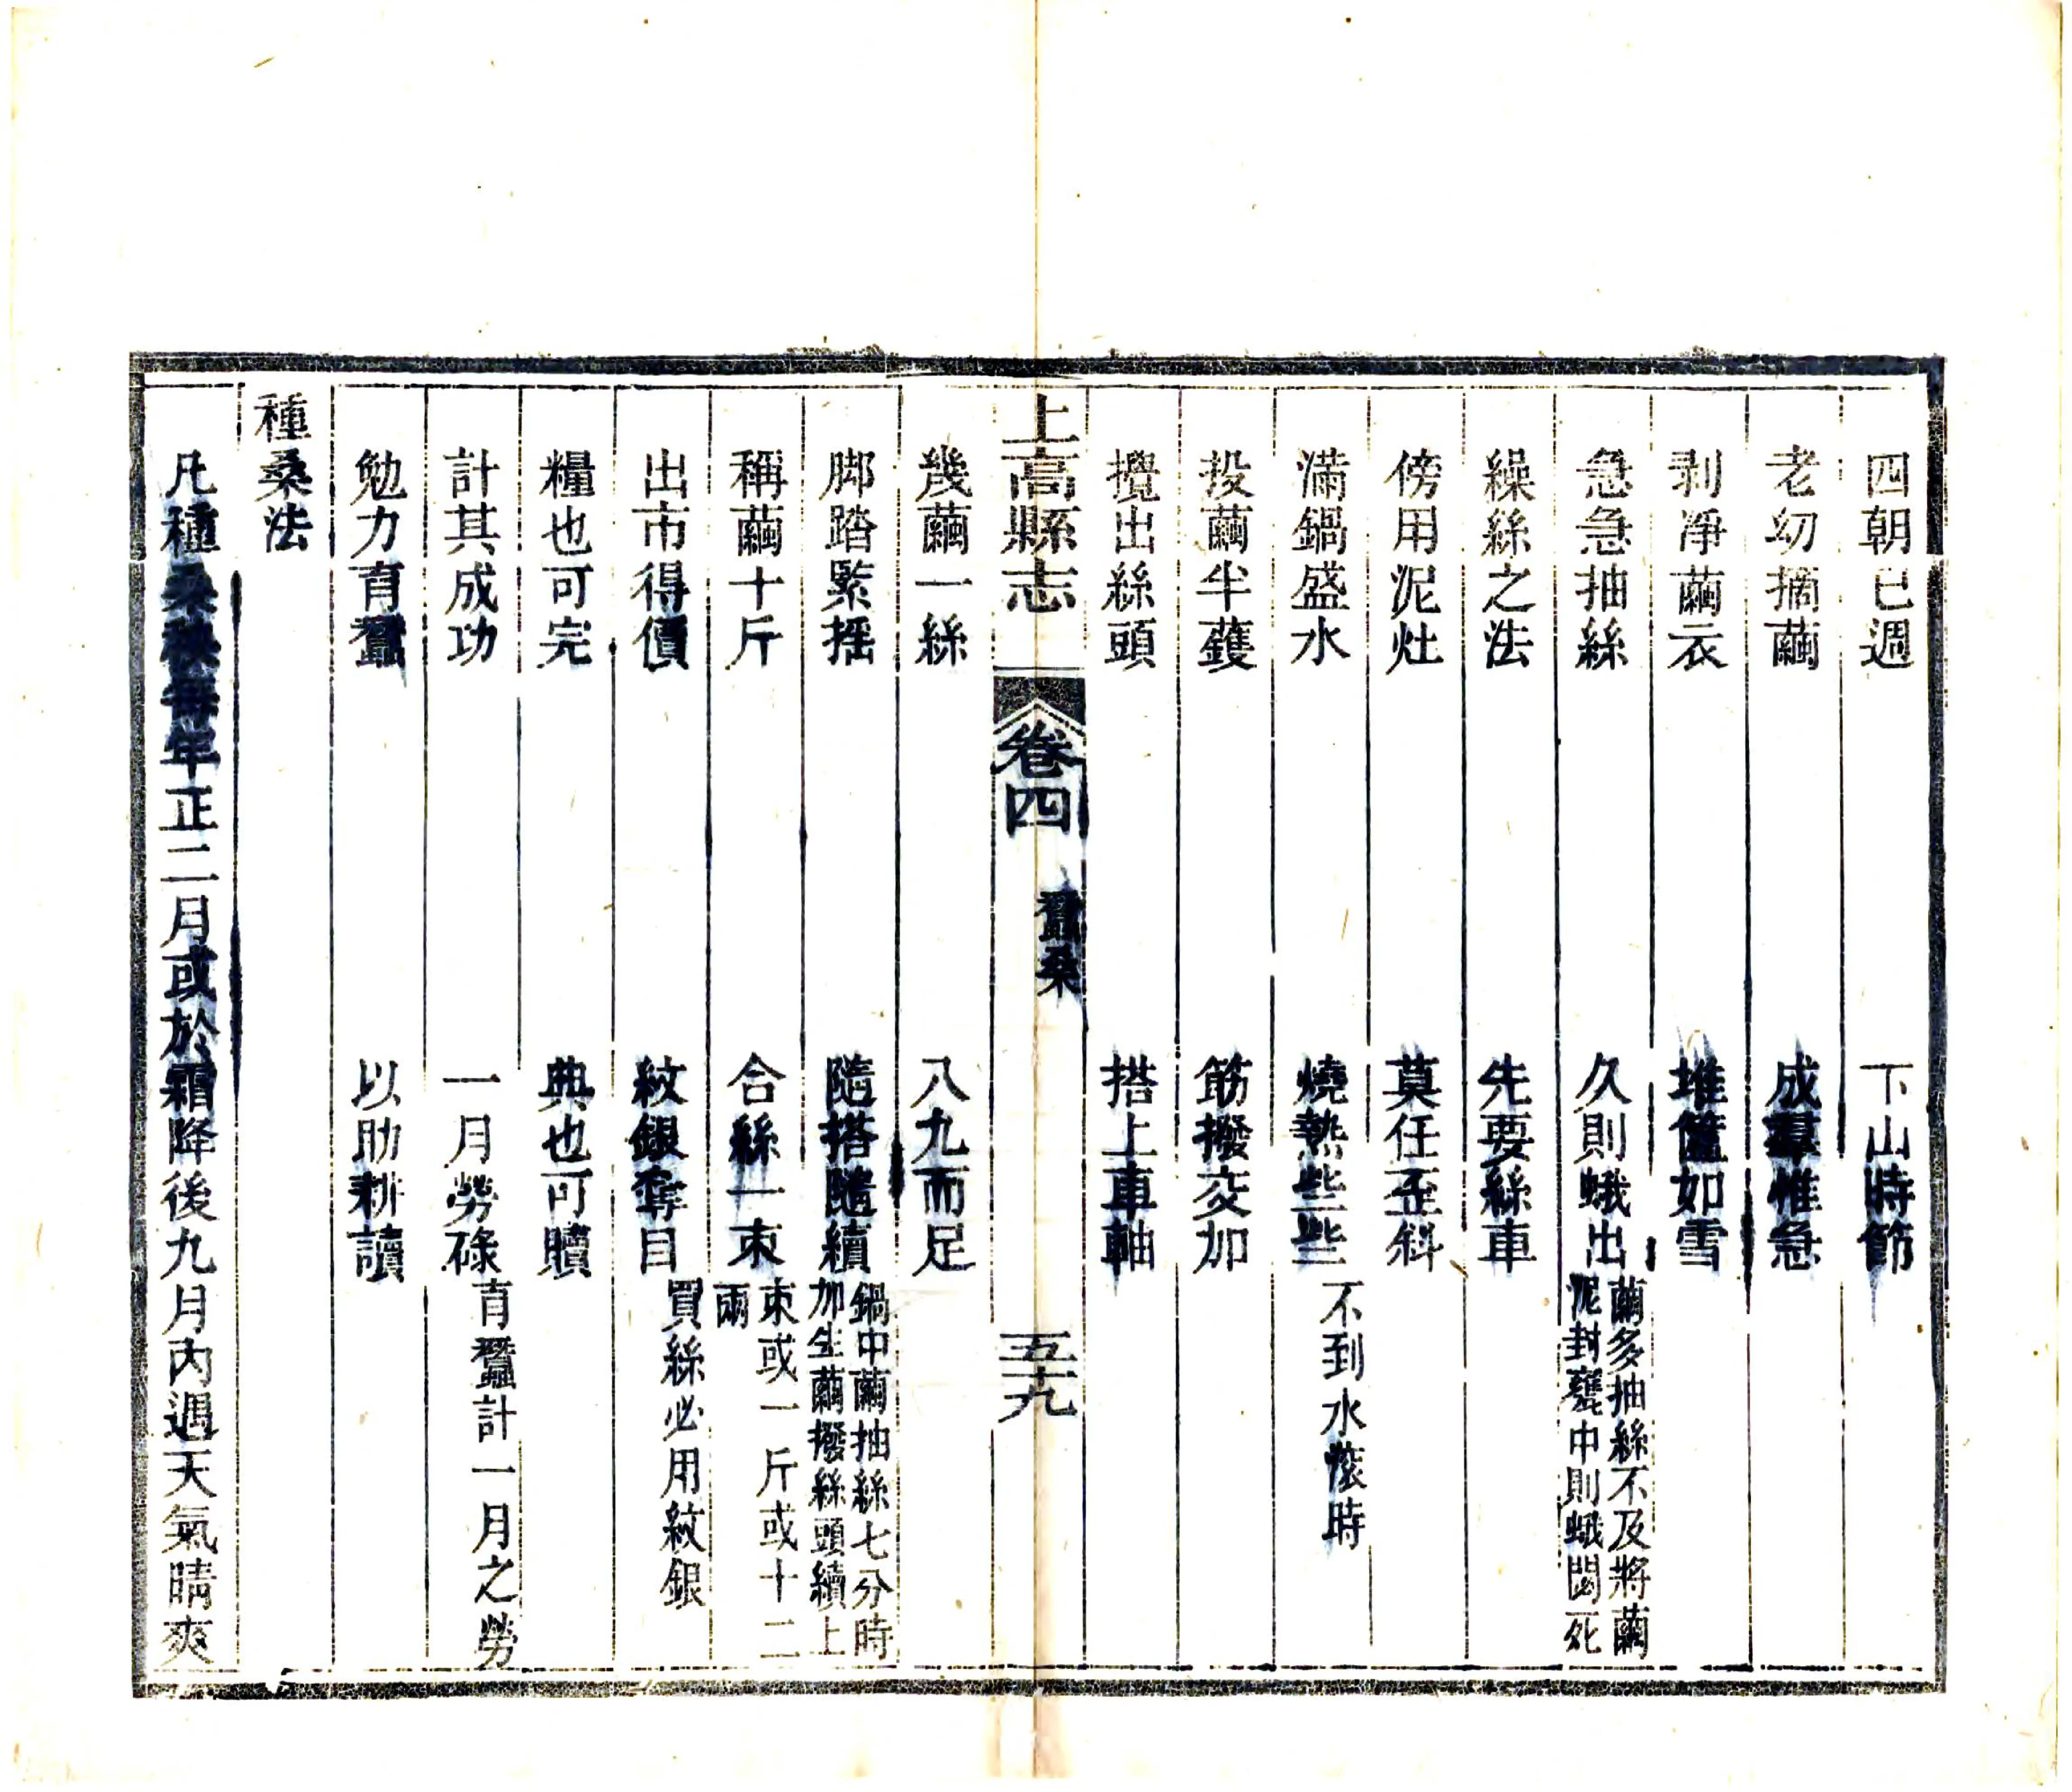 四朝已週　下山時節
老幼摘繭　成羣惟急
剥淨繭衣　堆筐如雪
急急抽絲　久則蛾出繭多抽絲不及將繭
泥封甕中則蛾悶死
繰絲之法　先要絲車
傍用泥灶　莫任歪斜
滿鍋盛水　燒熱些些不到水滾時
投繭半䕶　筋撥交加
攪出絲頭　搭上車軸
上高縣志　卷四　蠶桑　五十九
幾繭一絲　八九而足
脚踏緊揺　隨搭隨續鍋中繭抽絲七分時
加生繭撥絲頭續上
稱繭十斤　合絲一束束或一斤或十二
兩
出市得價　紋銀奪目買絲必用紋銀
糧也可完　典也可贖
計其成功　一月勞碌育蠶計一月之勞
勉力育蠶　以助耕讀
種桑法
凡種桑秧每年正二月或於霜降後九月內遇天氣晴爽